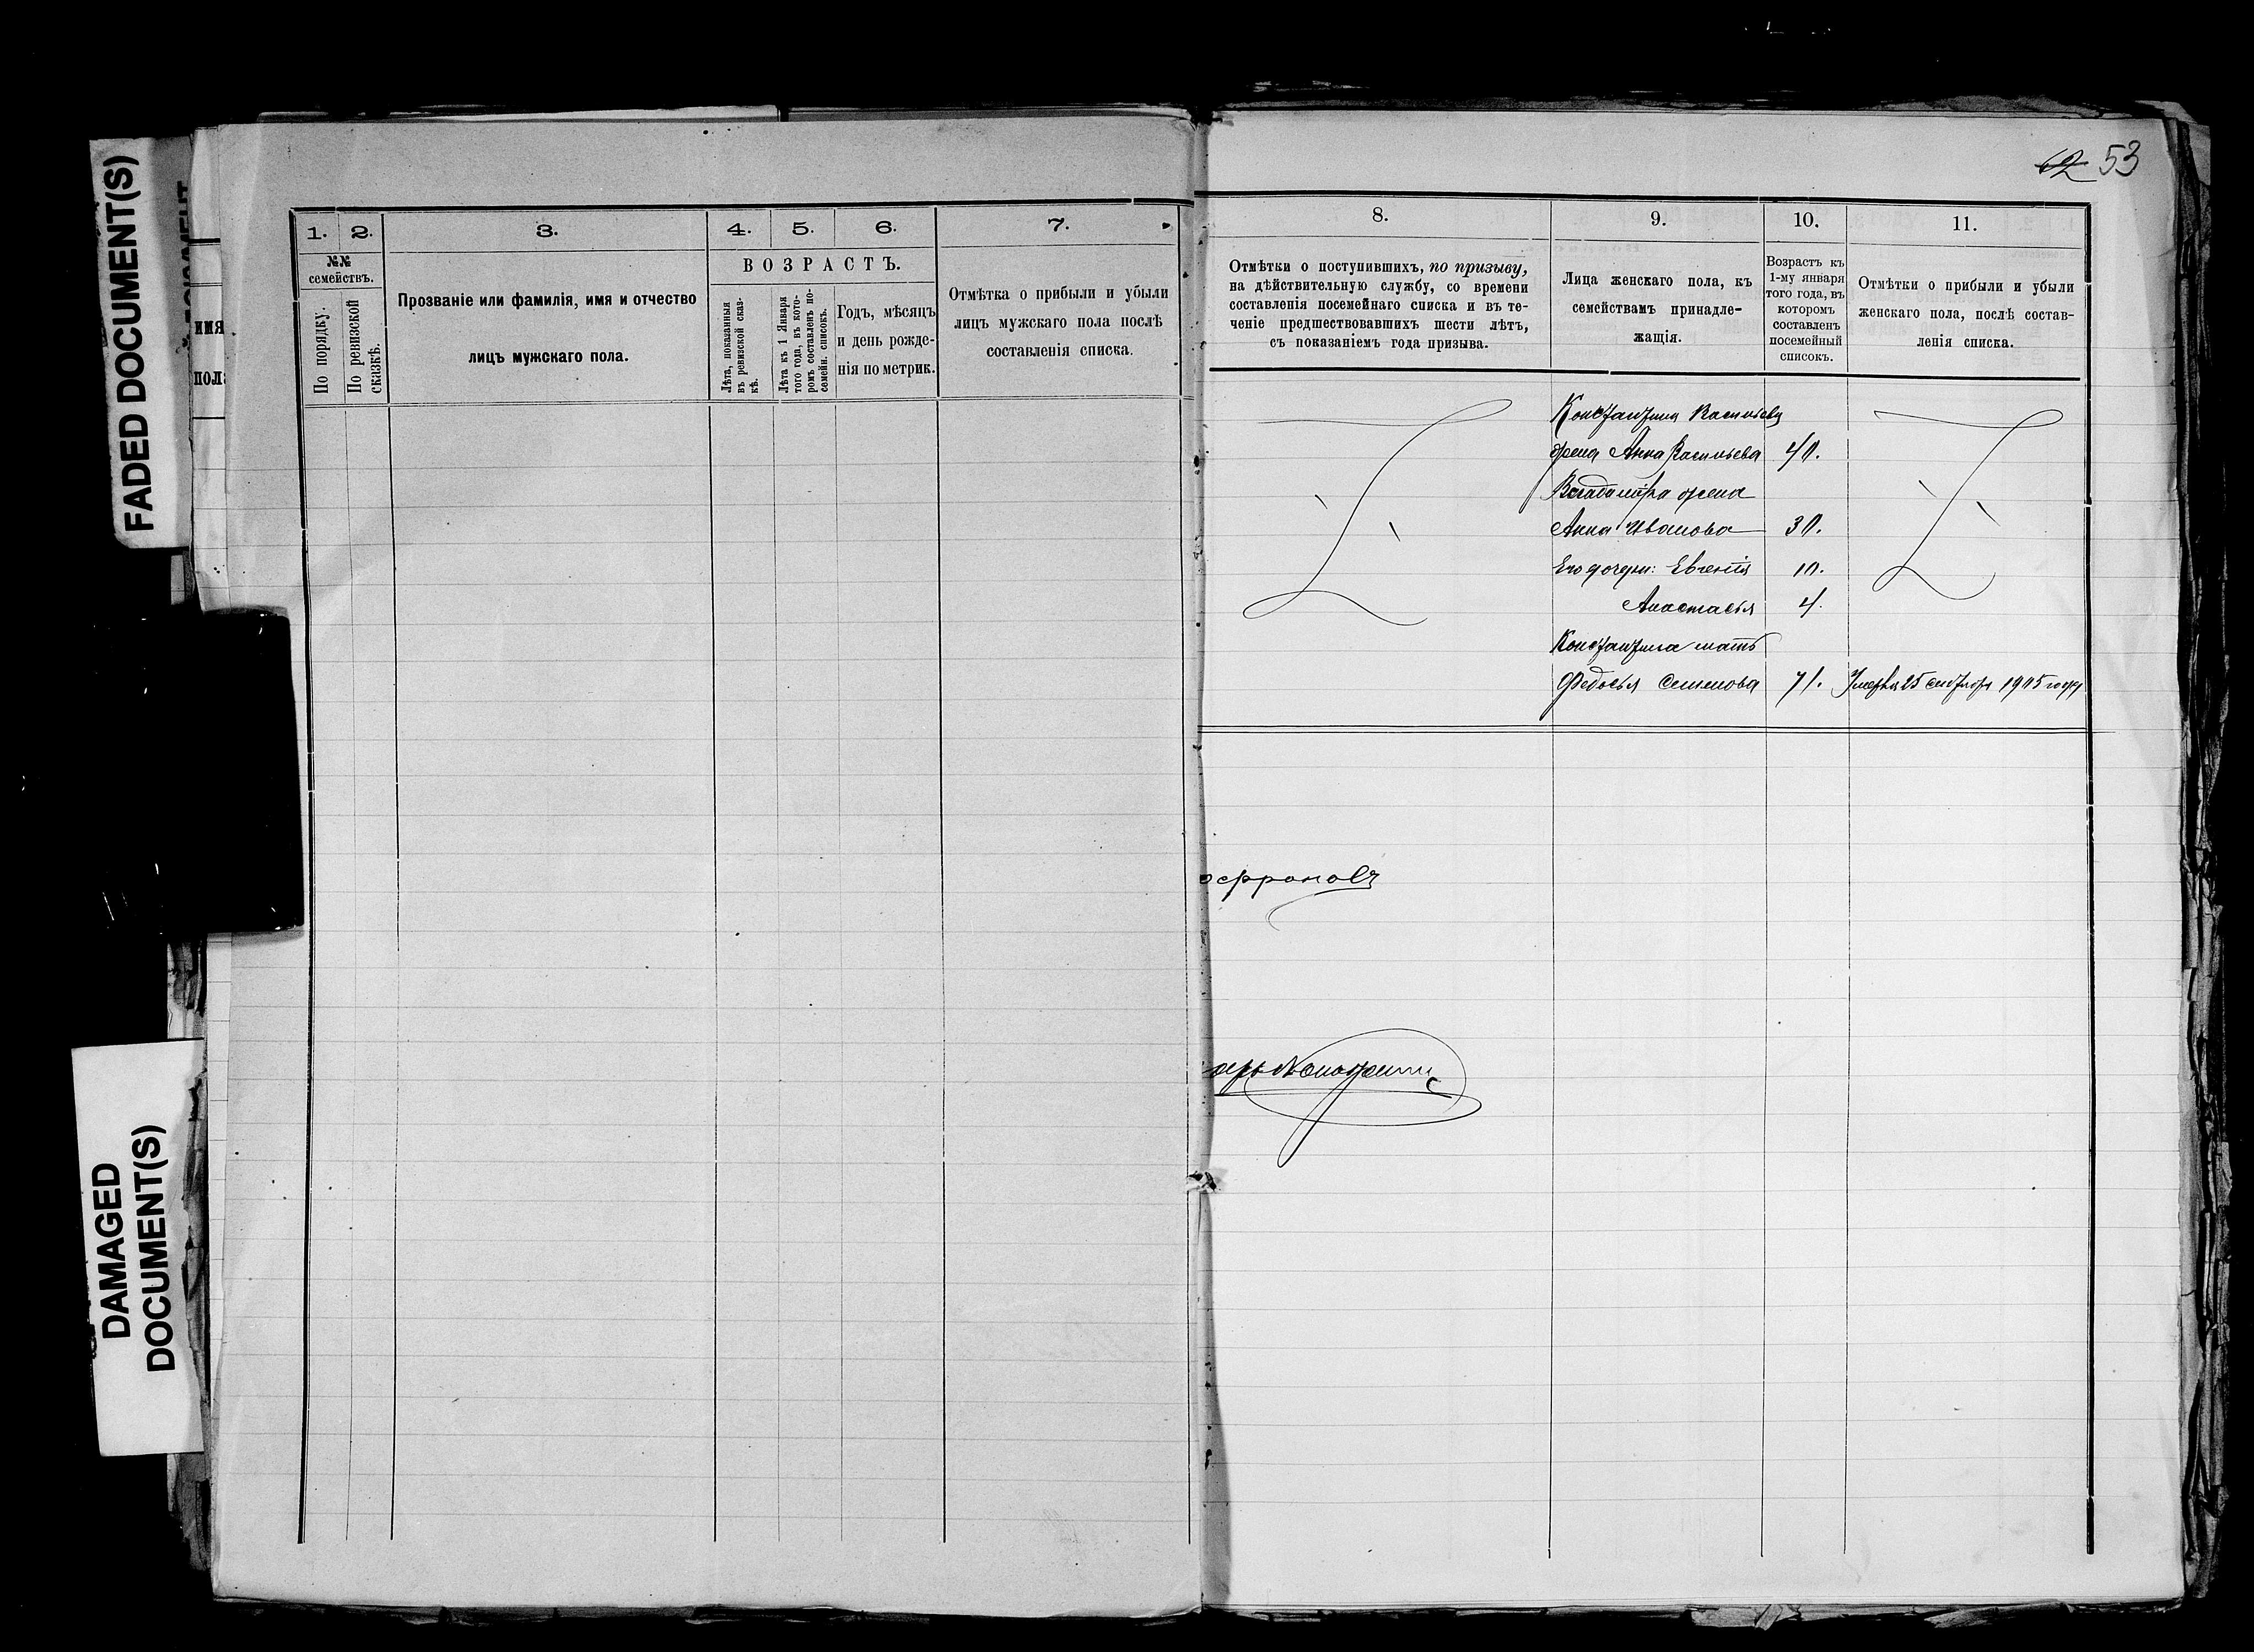 FADED DOCUMENT(S)
DAMAGED
DOCUMENT(S)
имя
пол
1. 2. 3. 4. 5. 6. 7.
№№
семействъ.
По порядку.
По ревизской
сказкѣ.
Прозваніе или фамилія, имя и отчество
лицъ мужскаго пола.
ВОЗРАСТЪ.
Лѣта, показанныя
въ ревизской сказ-
кѣ.
Лѣта къ 1 Января
того года, въ кото-
ромъ составленъ по-
семейн. списокъ.
Годъ, мѣсяцъ
и день рожде-
нія по метрик.
Отмѣтка о прибыли и убыли
лицъ мужскаго пола послѣ
составленія списка.
53
8. 9. 10. 11.
Отмѣтки о поступившихъ, по призыву,
на дѣйствительную службу, со времени
составленія посемейнаго списка и въ те-
ченіе предшествовавшихъ шести лѣтъ,
съ показаніемъ года призыва.
Лица женскаго пола, къ
семействамъ принадле-
жащія.
Возрастъ къ
1-му января
того года, въ
которомъ
составленъ
посемейный
списокъ.
Отмѣтки о прибыли и убыли
женскаго пола, послѣ состав-
ленія списка.
Константина Васильева
жена Анна Васильева 40.
Владиміра жена
Анна Иванова 30.
Его дочери: Евгенія 10.
Анастасья 4.
Константина мать
Федосья Семенова 71. Умерла 25 сентября 1905 года
офроновъ